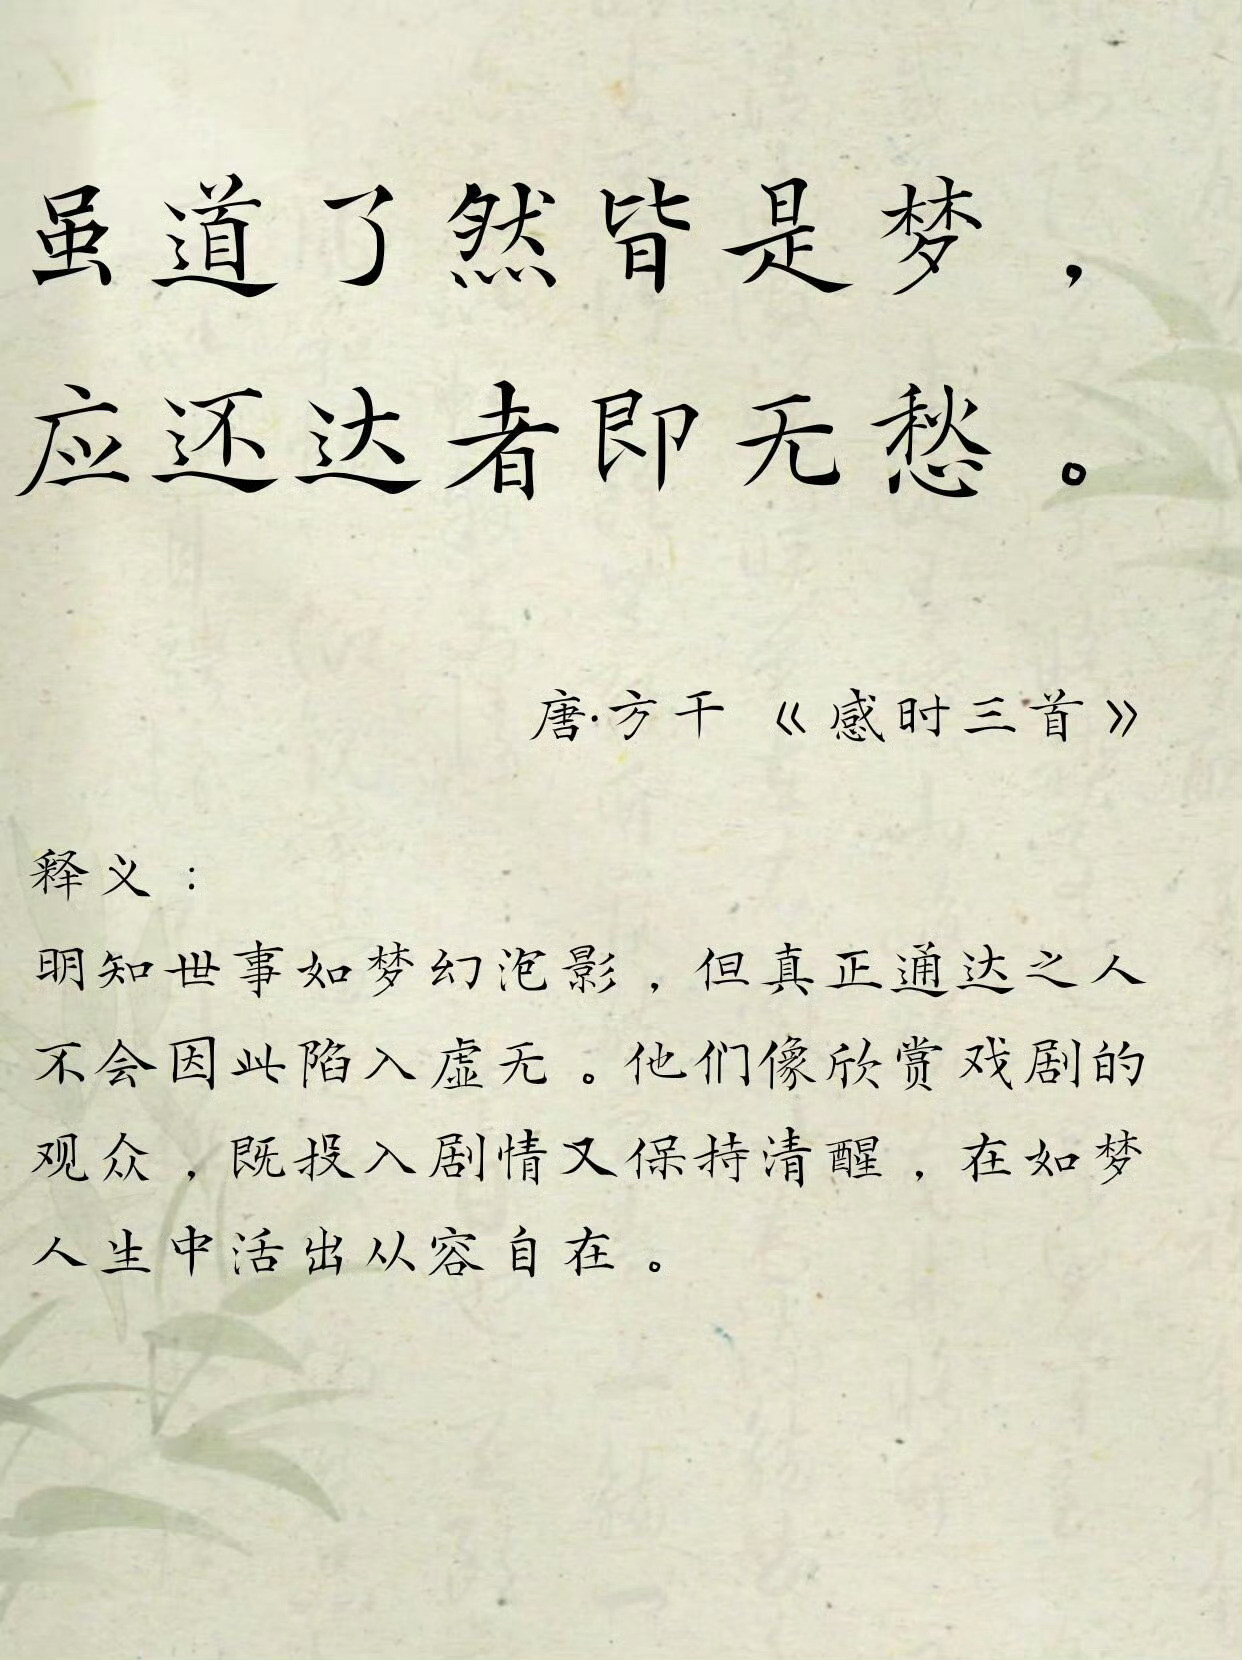 虽道了然皆是梦，
应还达者即无愁。
唐·方干《感时三首》
释义：
明知世事如梦幻泡影，但真正通达之人
不会因此陷入虚无。他们像欣赏戏剧的
观众，既投入剧情又保持清醒，在如梦
人生中活出从容自在。